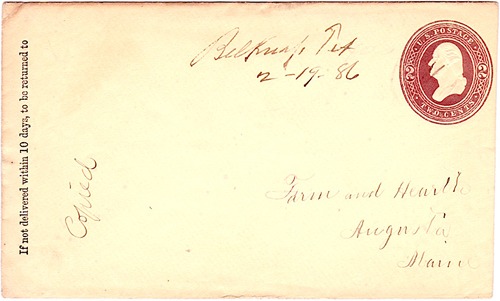 If not delivered within 10 days, to be returned to
Belknap Tex
2-19-86
U.S. POSTAGE
2 2
TWO CENTS
Copied
Farm and Hearth
Augusta
Maine